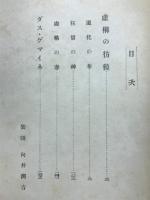 目次
虚構の彷徨
道化の華
狂言の神
虚構の春
ダス・ゲマイネ
装幀 向井潤吉